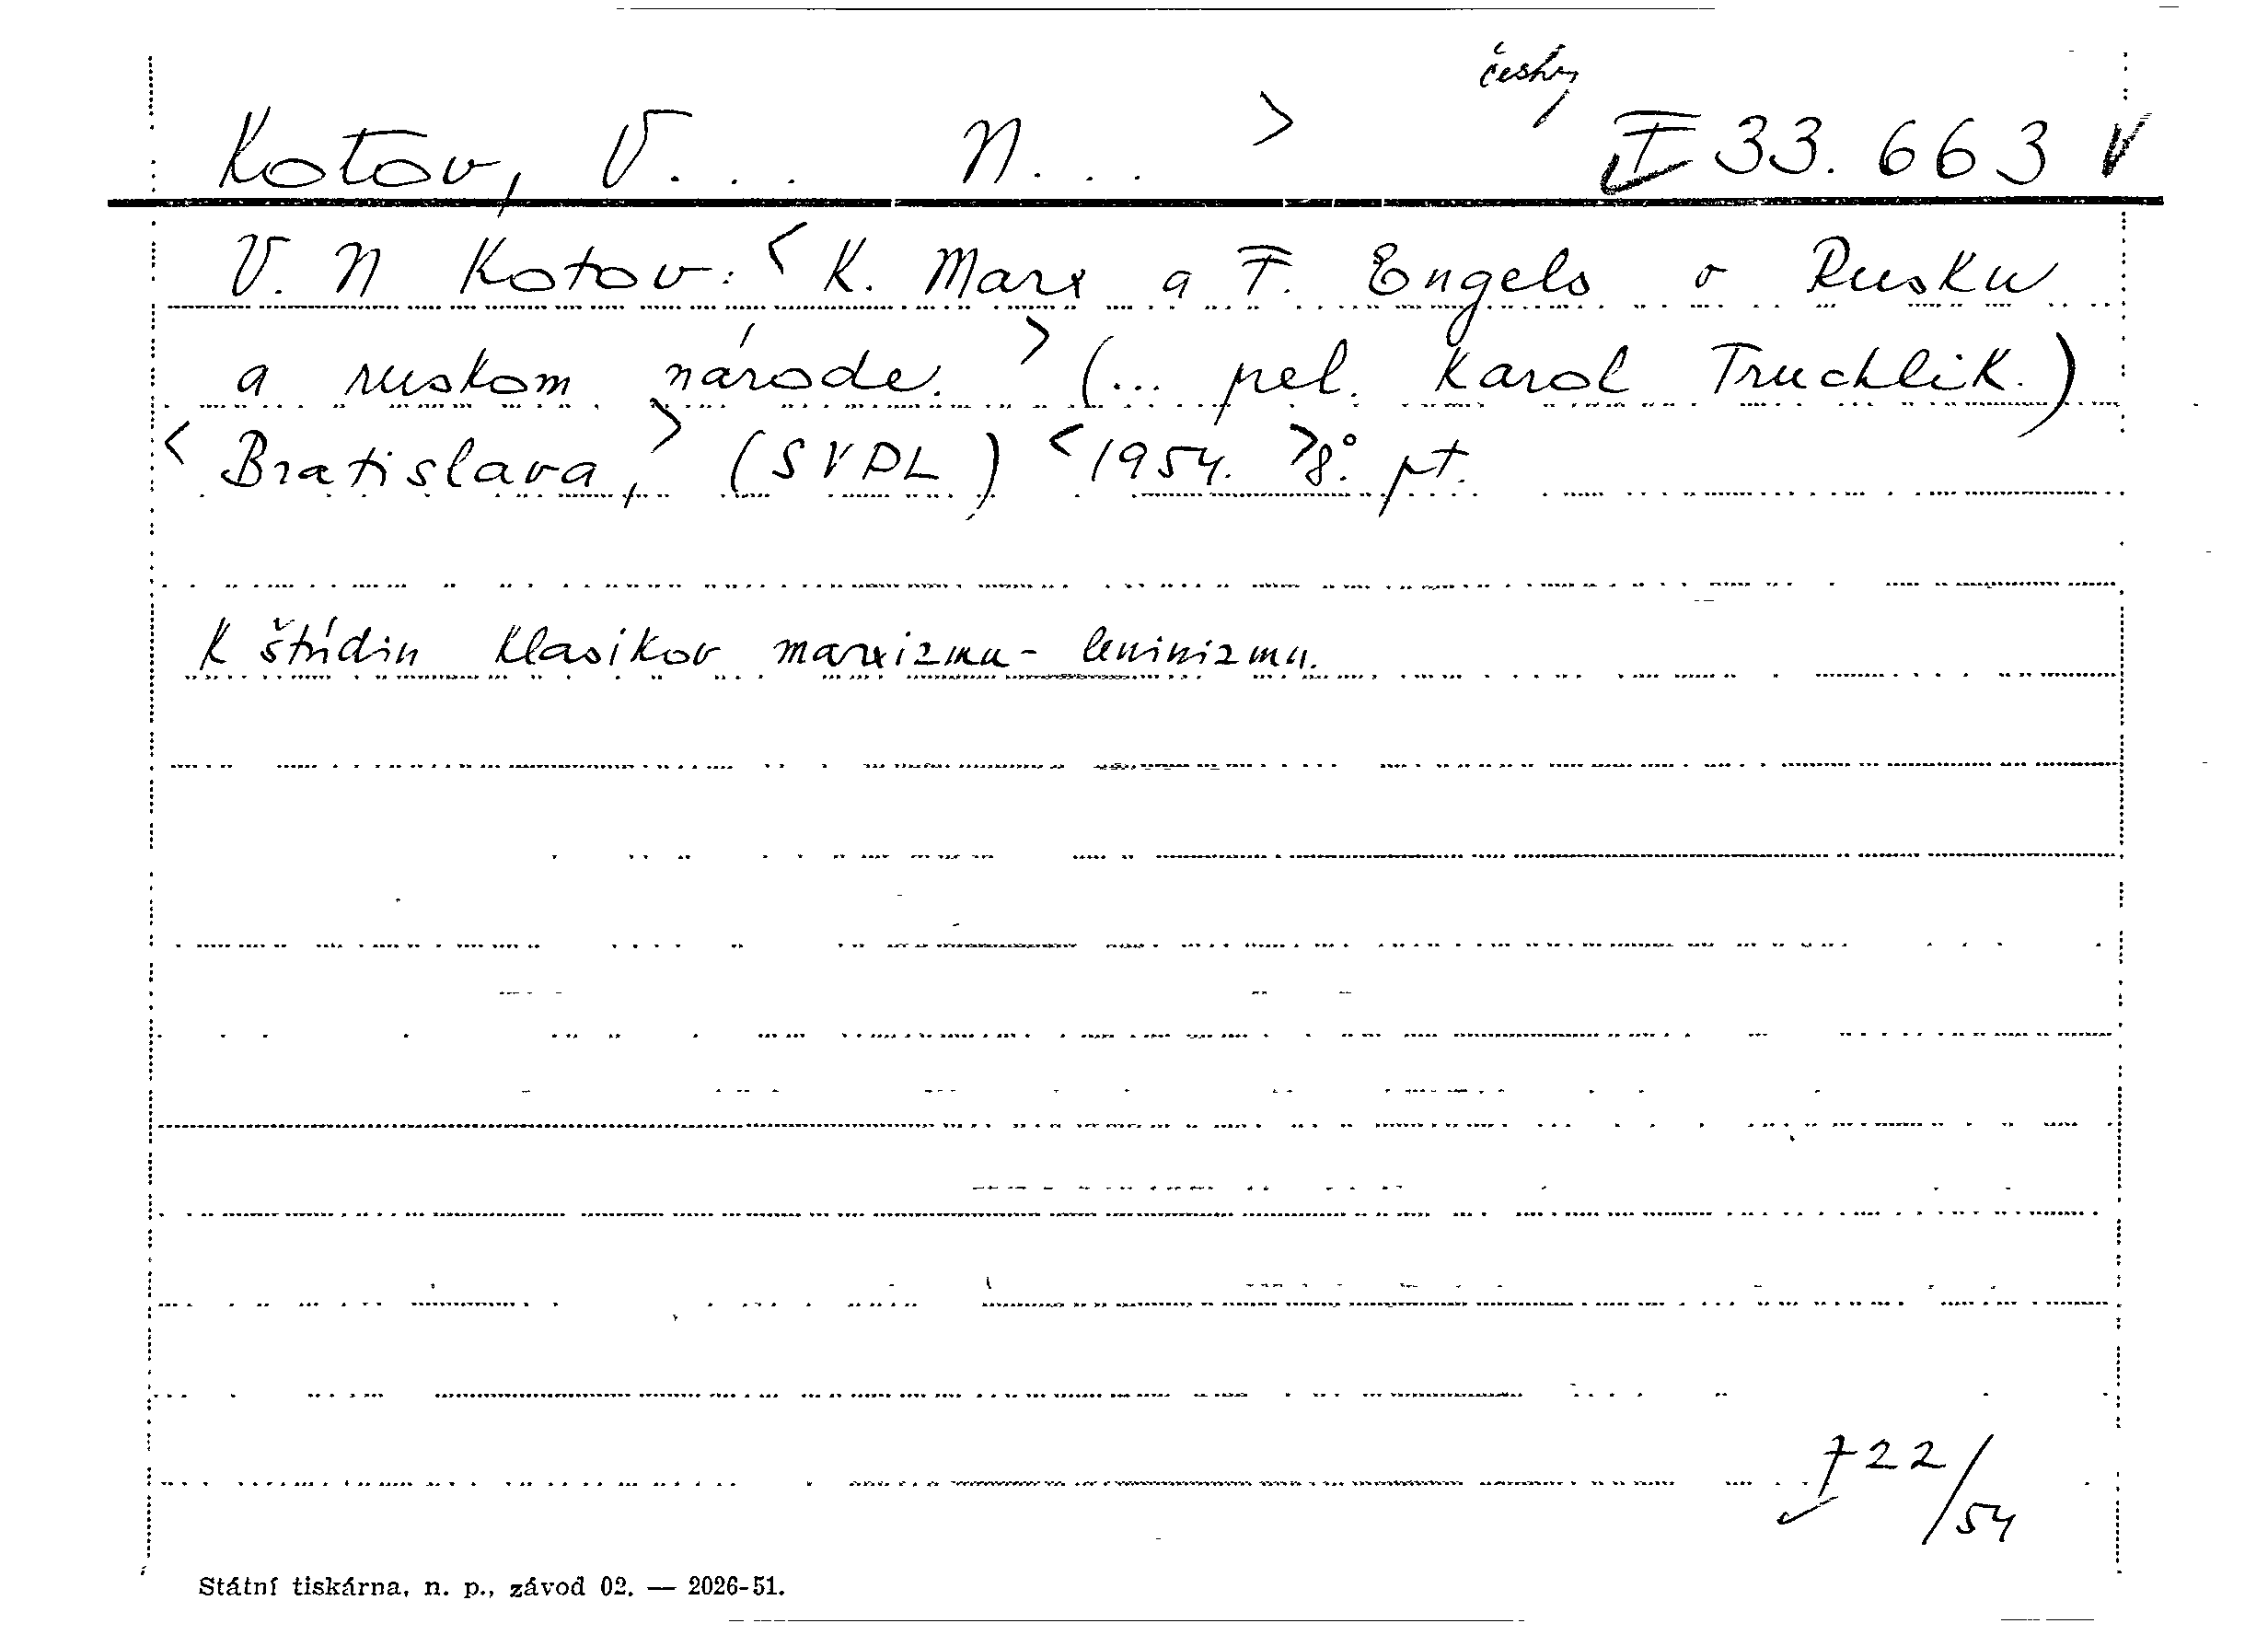 česky
Kotov, V... N... > I 33.663 V
V. N Kotov: <K. Marx a F. Engels o Rusku
a ruskom národe.> (... pel. Karol Truchlik.)
<Bratislava,> (SVPL) <1954.> 8°. pt.
K štúdiu klasikov marxizmu-leninizmu.
722/54
Státní tiskárna, n. p., závod 02. — 2026-51.